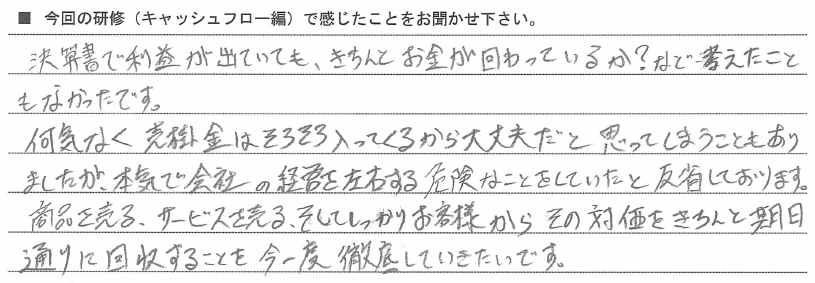 ■ 今回の研修（キャッシュフロー編）で感じたことをお聞かせ下さい。
決算書で利益が出ていても、きちんとお金が回わっているか?など考えたこと
もなかったです。
何気なく売掛金はそろそろ入ってくるから大丈夫だと思ってしまうこともあり
ましたが、本気で会社の経営を左右する危険なことをしていたと反省しております。
商品を売る、サービスを売る、そしてしっかりお客様からその対価をきちんと期日
通りに回収することを今一度徹底していきたいです。